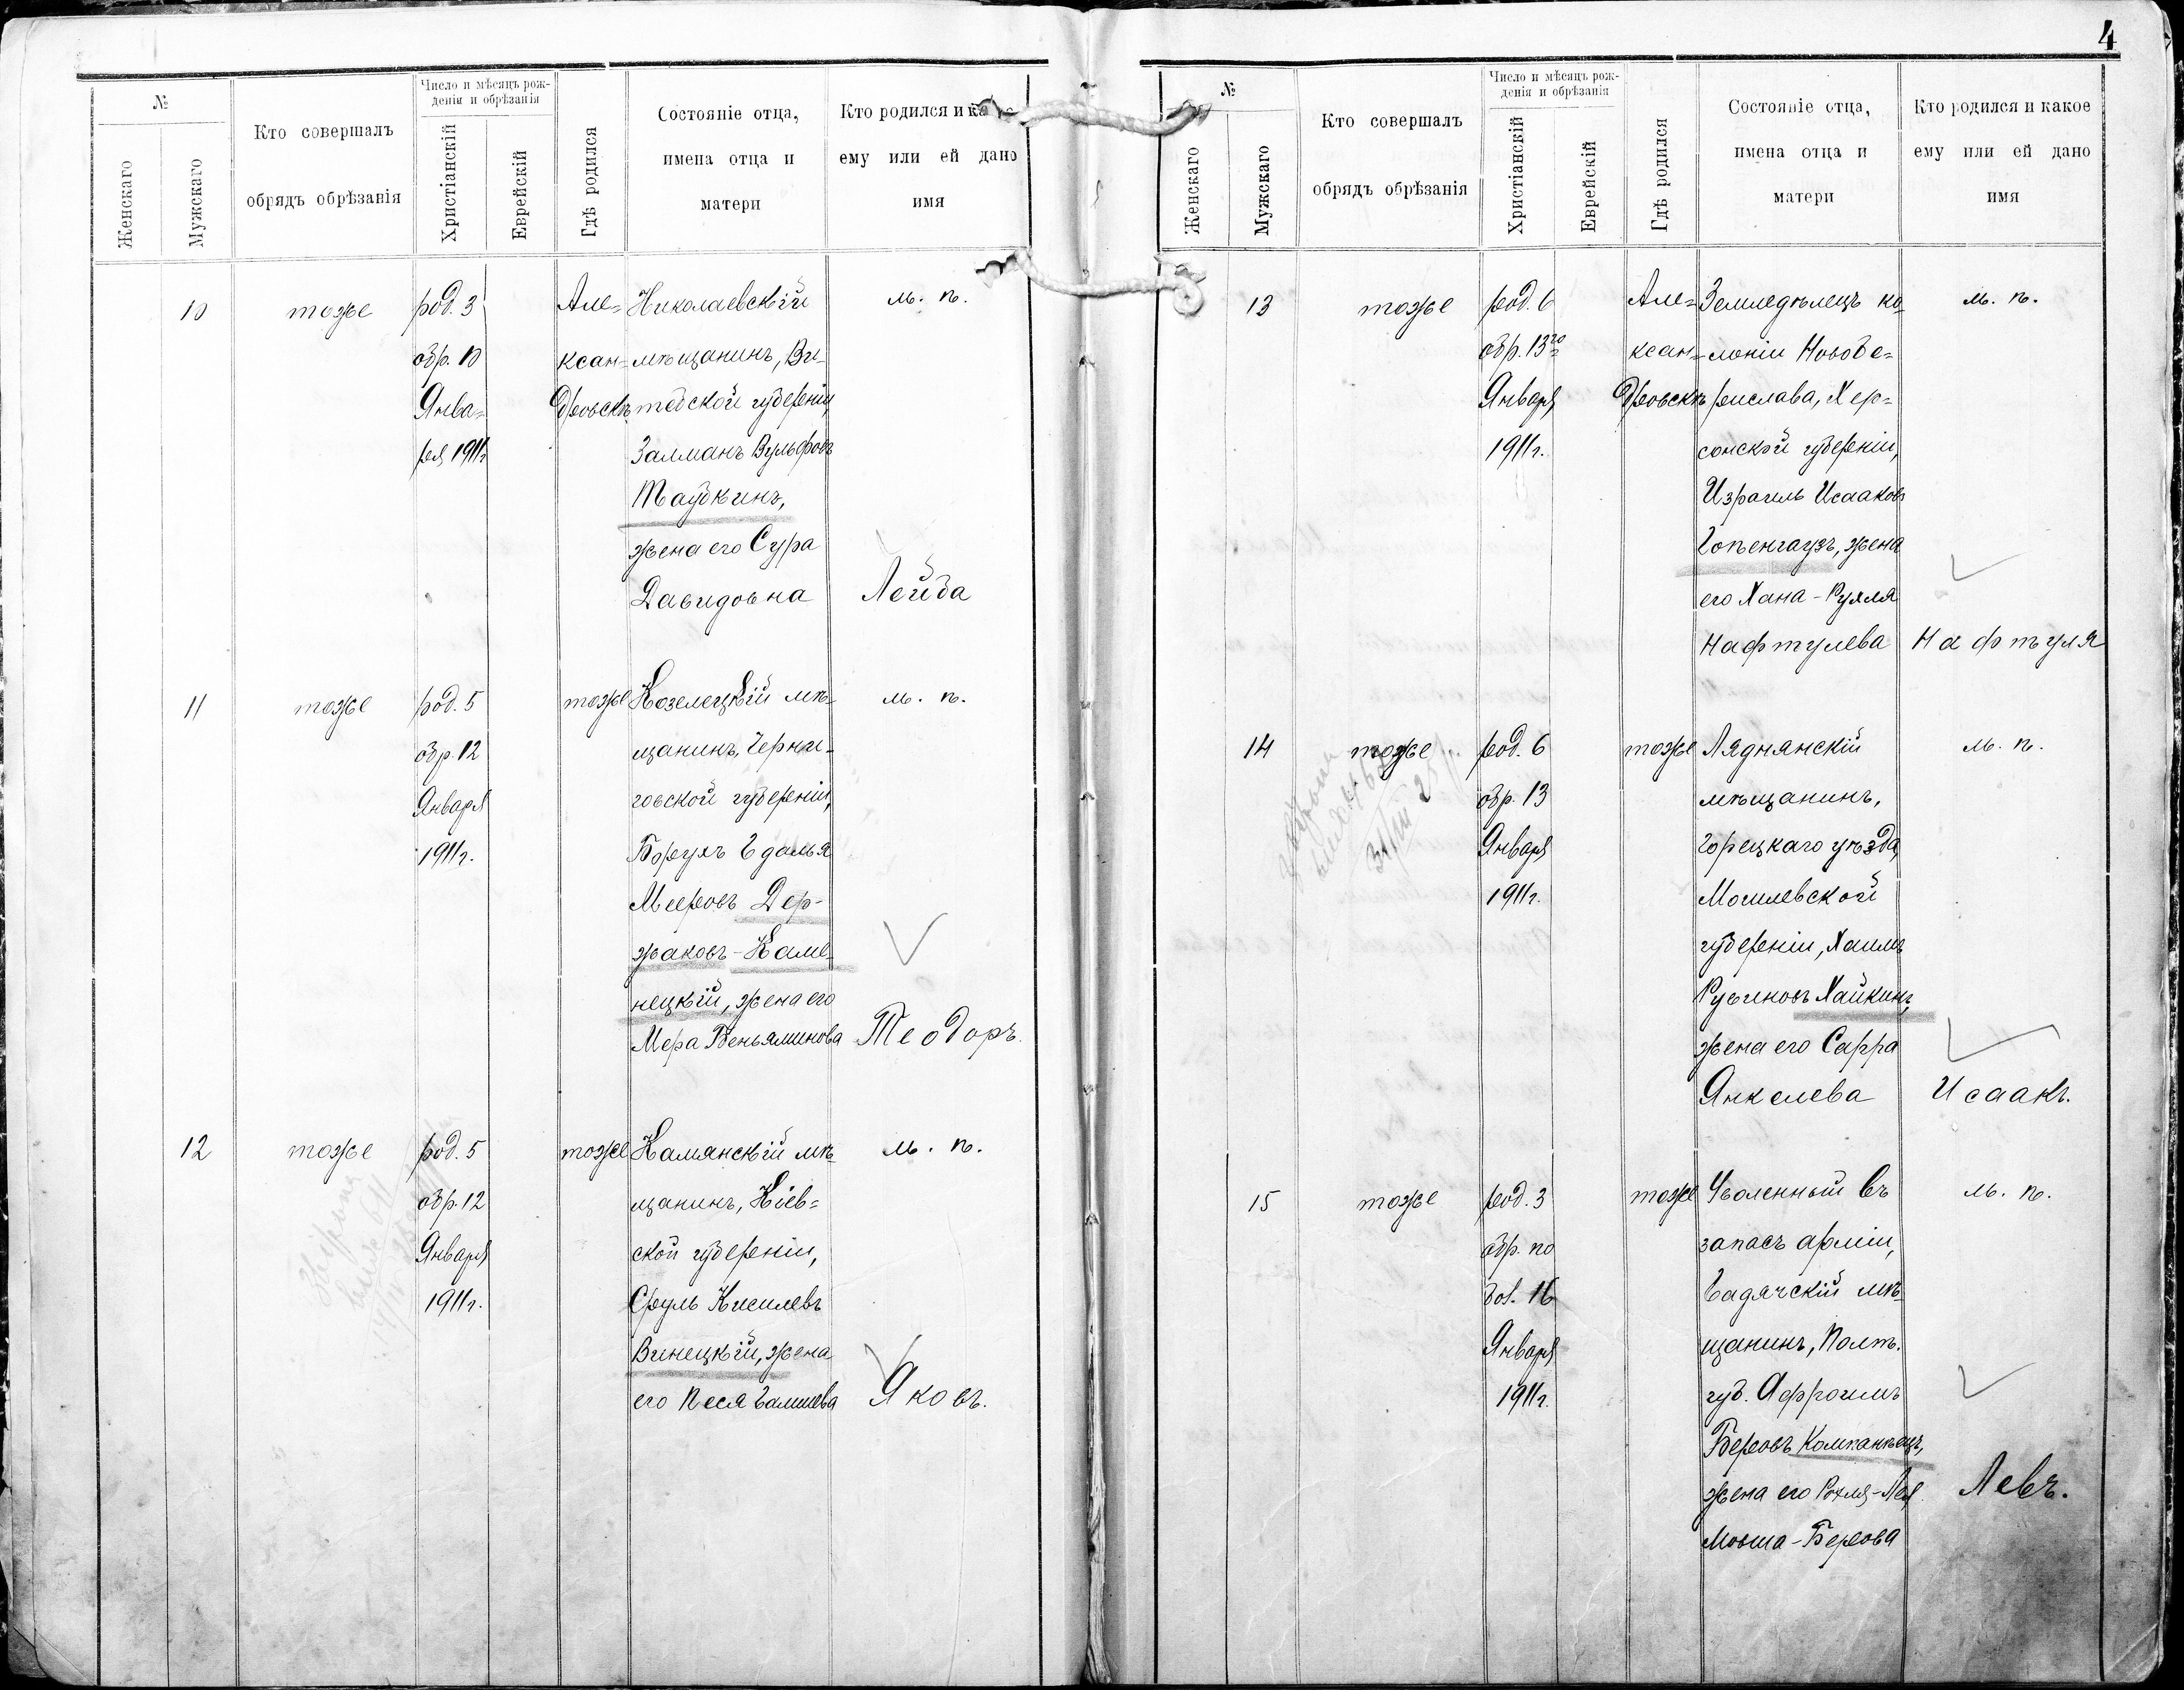 4
№
Женскаго
Мужскаго
Кто совершалъ
обрядъ обрѣзанія
Число и мѣсяцъ рож-
денія и обрѣзанія
Христіанскій
Еврейскій
Гдѣ родился
Состояніе отца,
имена отца и
матери
Кто родился и
ему или ей дано
имя
10
тоже
род. 3
обр. 10
Янва=
ря 1911г
Але=
ксан=
дровскѣ
Николаевскій
мѣщанинъ, Ви-
тебской губерніи,
Залманъ Вульфовъ
Таубкинъ,
жена его Сура
Давидовна
м. п.
Лейба
11
тоже
род. 5
обр. 12
Января
1911г.
тоже
Козелецкій мѣ-
щанинъ, Черни-
говской губерніи,
Борухъ Гдалья
Мееровъ Дер-
жаковъ-Каме-
нецкій, жена его
Мера Веньяминова
м. п.
Теодоръ.
12
тоже
род. 5
обр. 12
Января
1911г.
тоже
Камянскій мѣ-
щанинъ, Кіев=
ской губерніи,
Сруль Кисилевъ
Винецкій, жена
его Песя
м. п.
Яковъ.
№
Женскаго
Мужскаго
Кто совершалъ
обрядъ обрѣзанія
Число и мѣсяцъ рож-
денія и обрѣзанія
Христіанскій
Еврейскій
Гдѣ родился
Состояніе отца,
имена отца и
матери
Кто родился и какое
ему или ей дано
имя
13
тоже
род. 6
обр. 13го
Января
1911г.
Але=
ксан=
дровскѣ
Земледѣлецъ ко-
лоніи Новобе=
рислава, Хер=
сонской губерніи,
Израиль Исааковъ
Гопенгаузъ, жена
его Хана-Рухля
Нафтулева
м. п.
Нафтуля
14
тоже
род. 6
обр. 13
Января
1911г.
тоже
Ляднянскій
мѣщанинъ,
Горецкаго уѣзда,
Могилевской
губерніи, Хаимъ
Рувиновъ Хайкинъ,
жена его Сарра
Янкелева
м. п.
Исаакъ.
15
тоже
род. 3
обр. по
бол. 16
Января
1911г.
тоже
Уволенный въ
запасъ арміи,
Гадячскій мѣ-
щанинъ, Полт.
губ. Афроимъ
Беровъ Компанѣецъ,
жена его Рохля-Лея
Мовша-Берова
м. п.
Левъ.